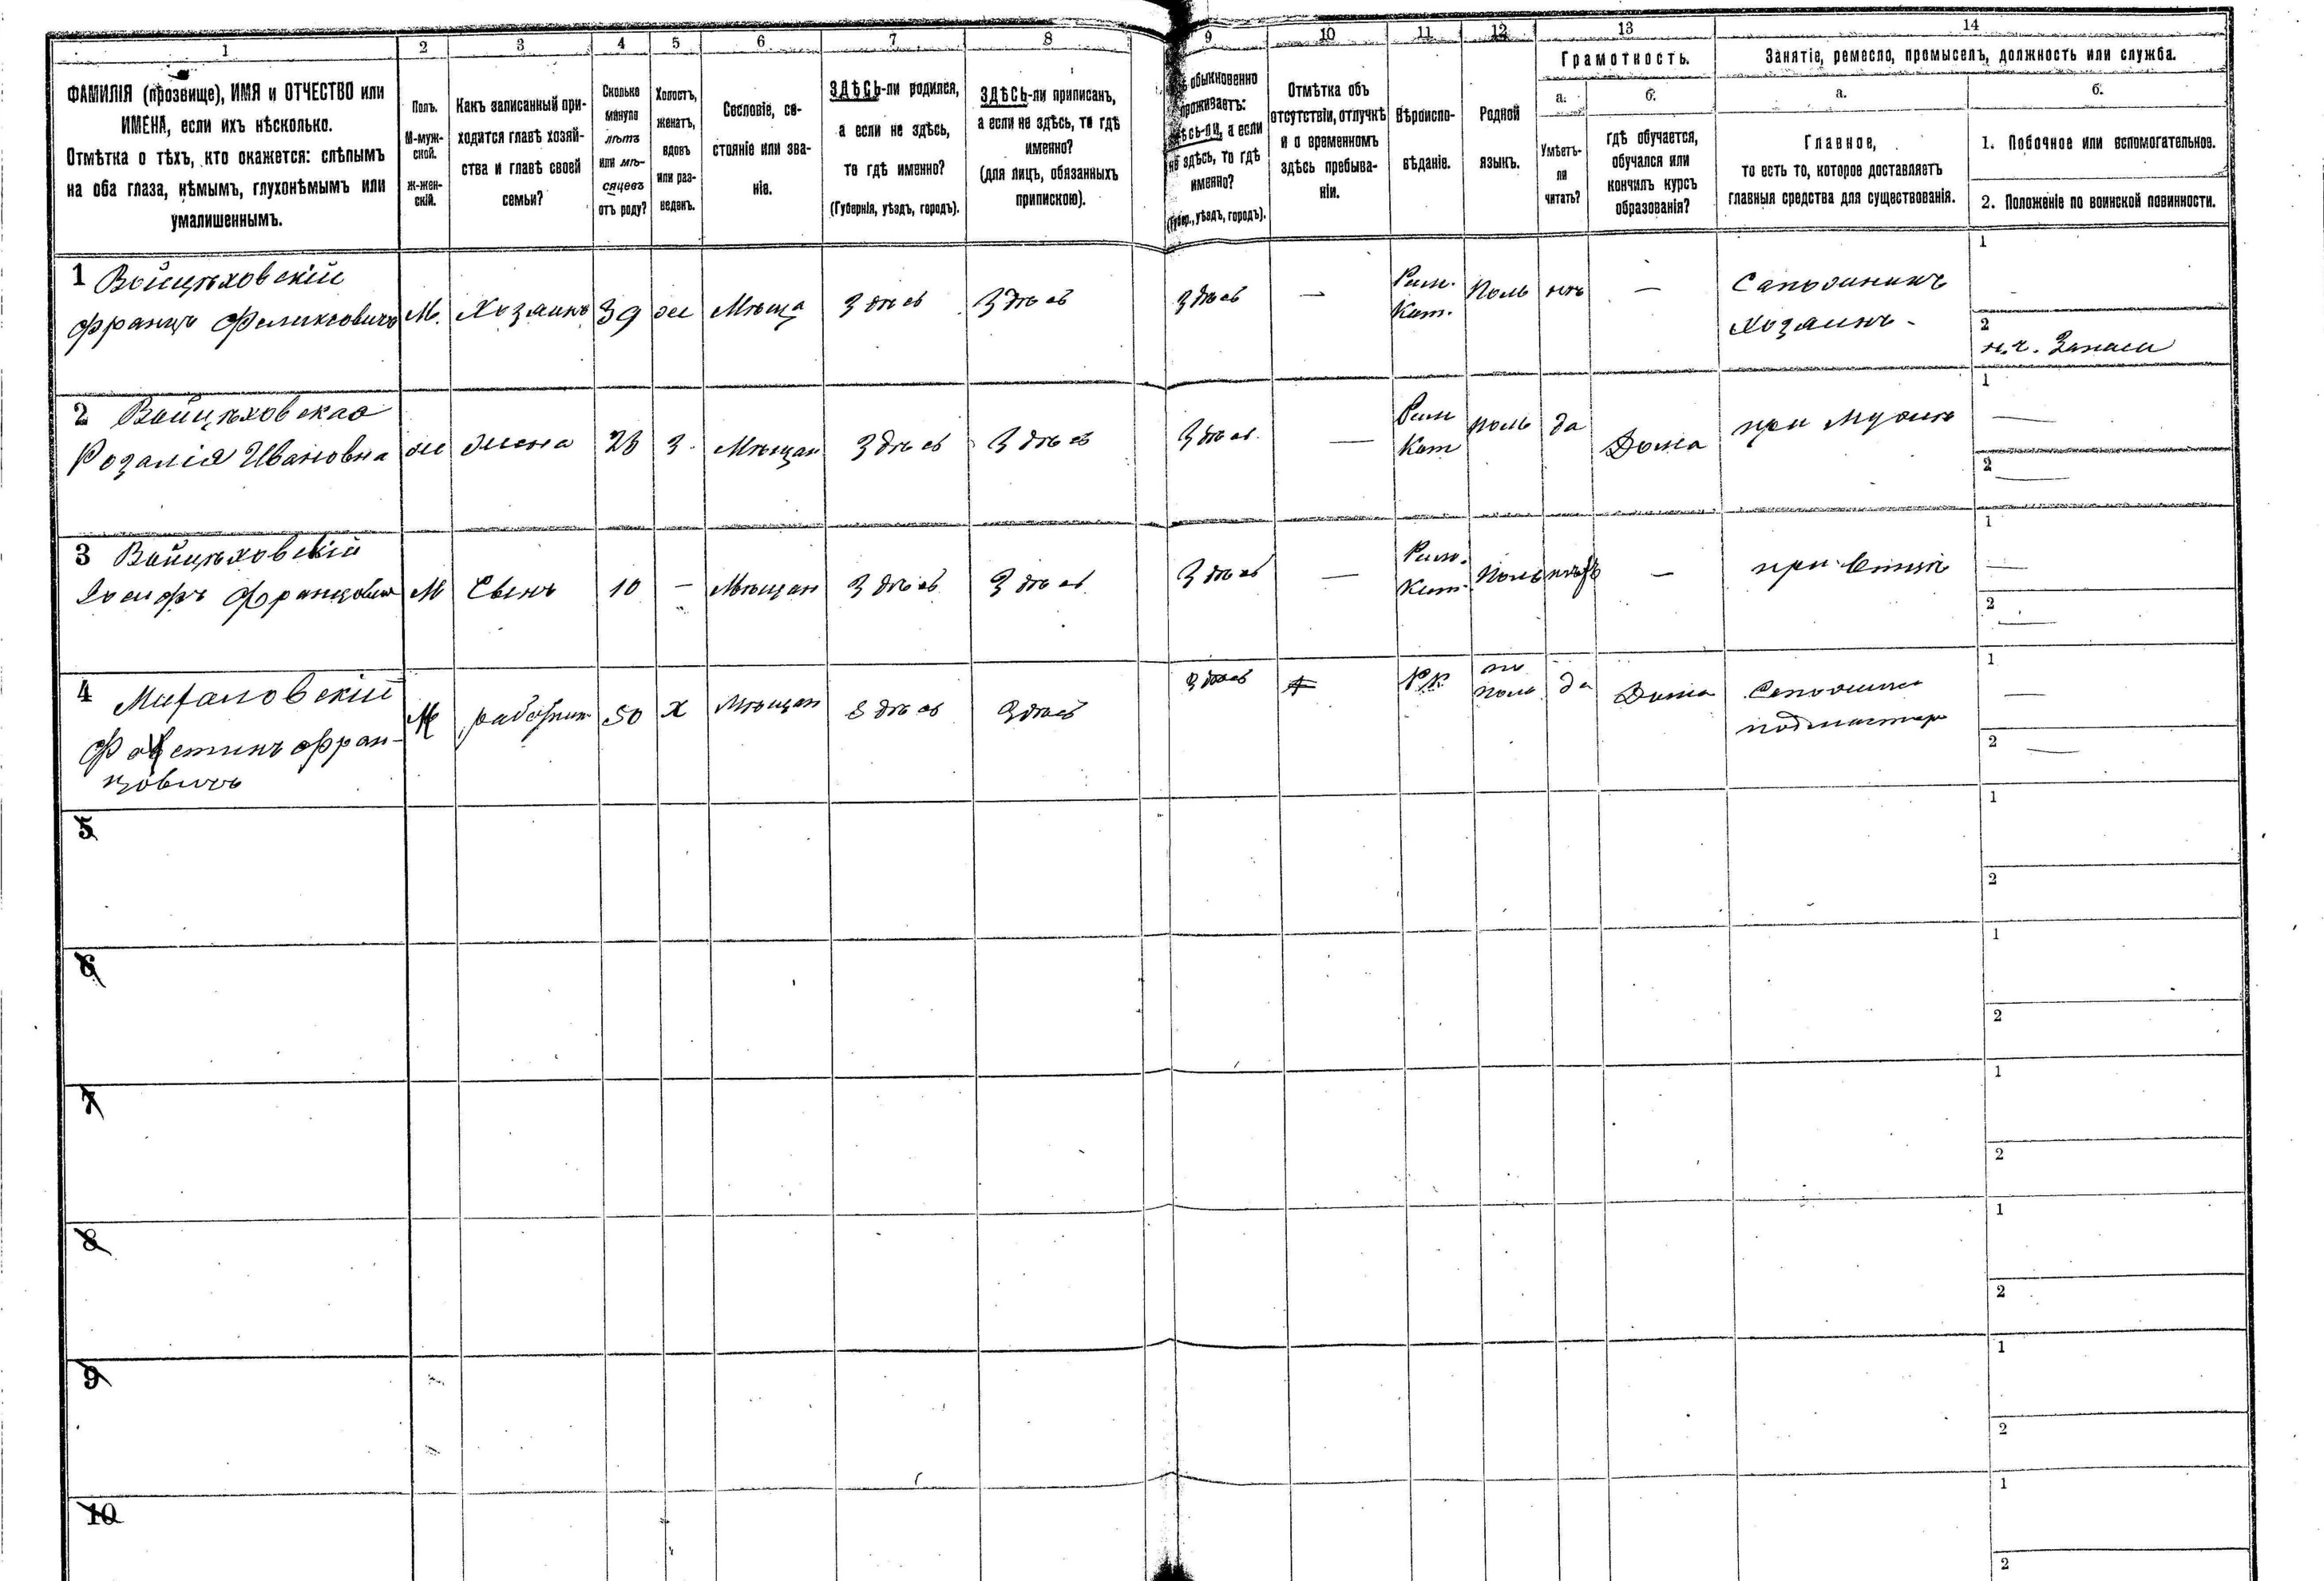 1 2 3 4 5 6 7 8 9 10 11 12 13 14
ФАМИЛІЯ (прозвище), ИМЯ и ОТЧЕСТВО или
ИМЕНА, если ихъ нѣсколько.
Отмѣтка о тѣхъ, кто окажется: слѣпымъ
на оба глаза, нѣмымъ, глухонѣмымъ или
умалишеннымъ.
Полъ.
М-муж-
ской.
Ж-жен-
скій.
Какъ записанный при-
ходится главѣ хозяй-
ства и главѣ своей
семьи?
Сколько
минуло
лѣтъ
или мѣ-
сяцевъ
отъ роду?
Холостъ,
женатъ,
вдовъ
или раз-
веденъ.
Сословіе, со-
стояніе или зва-
ніе.
ЗДѢСЬ-ли родился,
а если не здѣсь,
то гдѣ именно?
(Губернія, уѣздъ, городъ).
ЗДѢСЬ-ли приписанъ,
а если не здѣсь, то гдѣ
именно?
(для лицъ, обязанныхъ
припискою).
обыкновенно
проживаетъ:
здѣсь-ли, а если
не здѣсь, то гдѣ
именно?
(Губер., уѣздъ, городъ).
Отмѣтка объ
отсутствіи, отлучкѣ
и о временномъ
здѣсь пребыва-
ніи.
Вѣроиспо-
вѣданіе.
Родной
языкъ.
Грамотность.
а.
Умѣетъ-
ли
читать?
б.
гдѣ обучается,
обучался или
кончилъ курсъ
образованія?
Занятіе, ремесло, промыселъ, должность или служба.
а.
Главное,
то есть то, которое доставляетъ
главныя средства для существованія.
б.
1. Побочное или вспомогательное.
2. Положеніе по воинской повинности.
1 Войцѣховскій
Францъ Феликсовичъ
М. Хозяинъ 39 ж Мѣща Здѣсь Здѣсь Здѣсь —
Рим.
Кат.
Поль нѣтъ —
Сапожникъ
Хозяинъ -
1
2
н. ч. Запаса
2 Войцѣховская
Розалія Ивановна
ж жена 23 З. Мѣщан Здѣсь Здѣсь Здѣсь —
Рим
Кат
поль да Дома при мужѣ
1 —
2 —
3 Войцѣховскій
Іосифъ Францович
М Сынъ 10 — Мѣщан Здѣсь Здѣсь Здѣсь —
Рим.
Кат.
Поль нѣтъ — при отцѣ
1 —
2 —
4
Фаустинъ Фран-
цовичъ
М работник 50 Х Мѣщан Здѣсь Здѣсь Здѣсь
Р К
поль да Дома
подмастер
1 —
2 —
5
1
2
6
1
2
7
1
2
8
1
2
9
1
2
10
1
2